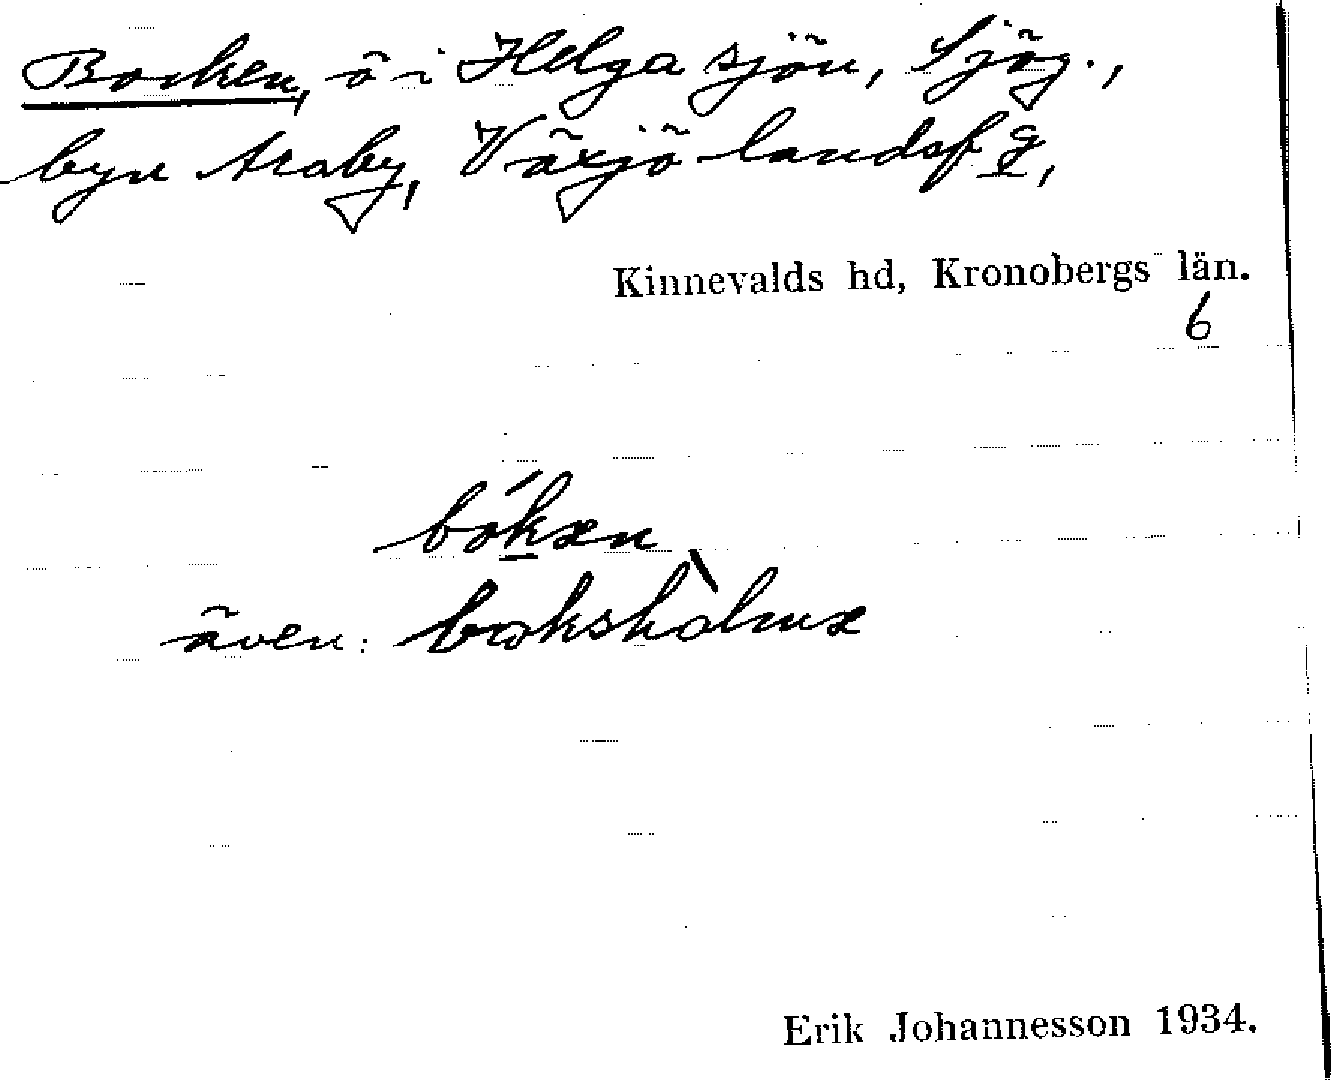 Bocken, ö i Helgasjön, Sjög.,
byn Araby, Växjö landsf g,
Kinnevalds hd, Kronobergs län.
6
bók̲ən
även: bokshòlmə
Erik Johannesson 1934.